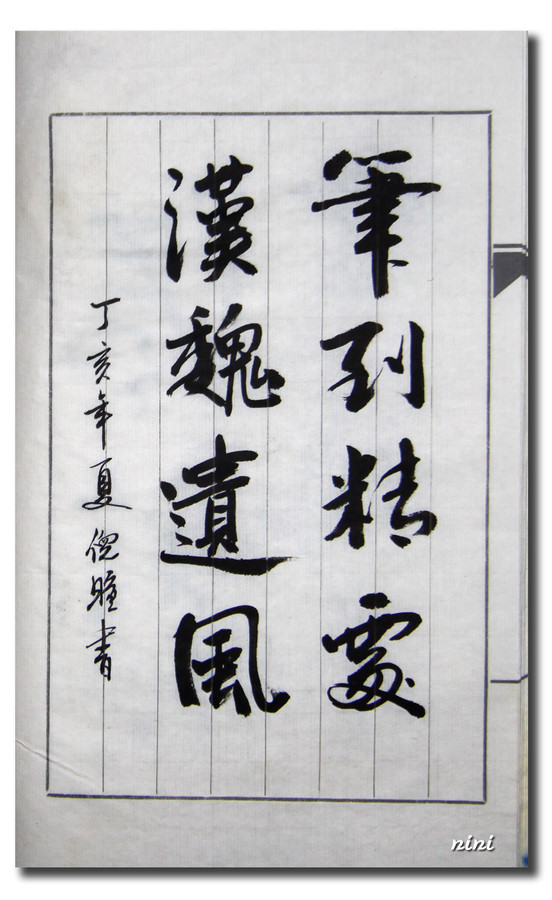 筆到精處
漢魏遺風
丁亥年夏倪書
nini